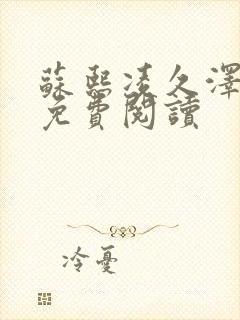 蘇熙凌久澤
免費閱讀
冷憂